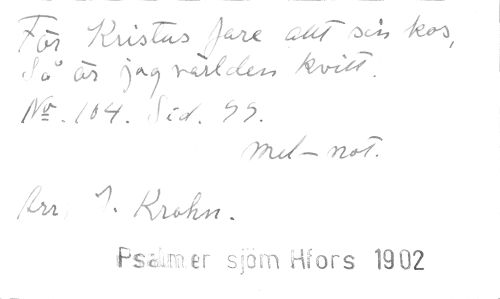 För Kristus fare allt sin kos,
Så är jag världen kvitt.
No. 104. Sid. 99.
mel-not.
Arr. I. Krohn.
Psalmer sjöm Hfors 1902